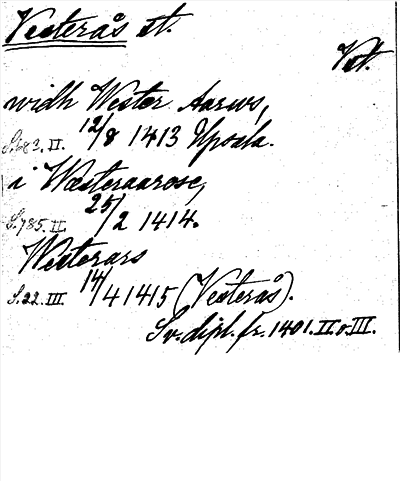 Vesterås st.
Vst.
widh Wester Aarws,
S. 683. II. 12/8 1413 Upsala.
i Wæsteraarose,
S. 785. II. 25/2 1414.
Westerars
S. 22. III. 14/4 1415 (Vesterås).
Sv. dipl. fr. 1401. II o. III.